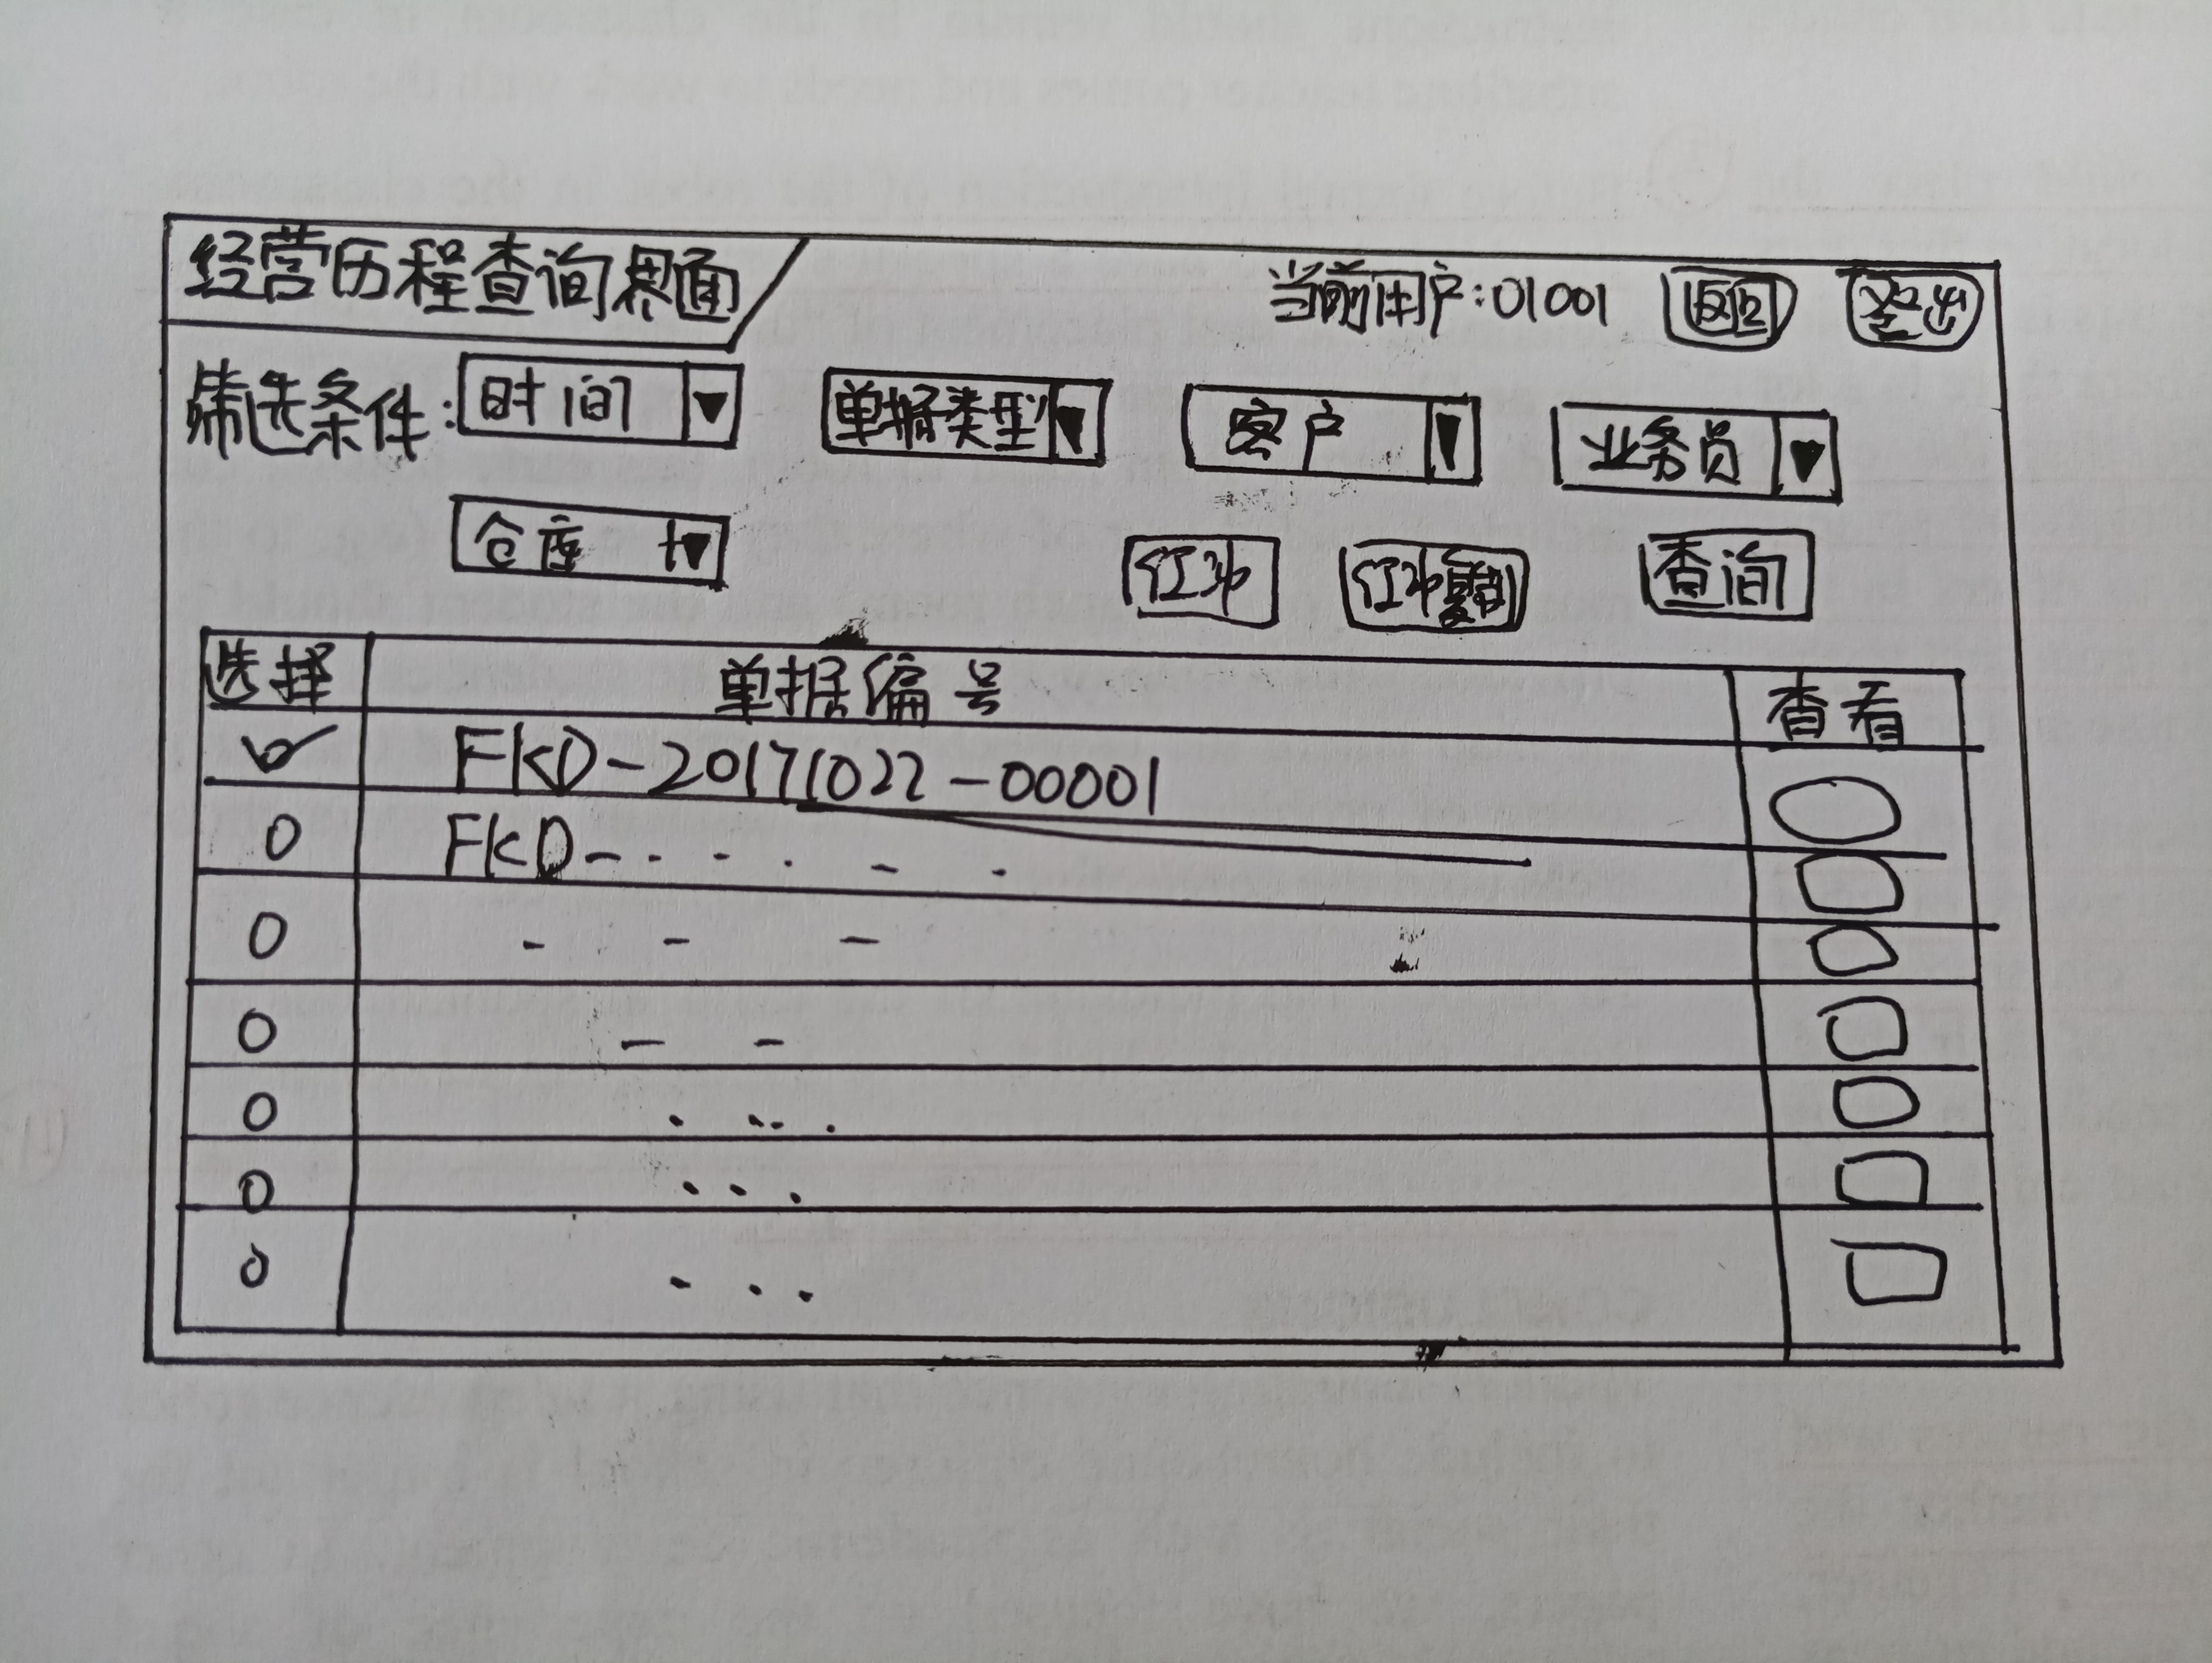 经营历程查询界面 当前用户:01001 返回 登出
筛选条件: 时间 单据类型 客户 业务员
仓库 红冲 红冲复制 查询
选择 单据编号 查看
FKD-20171022-00001
FKD-